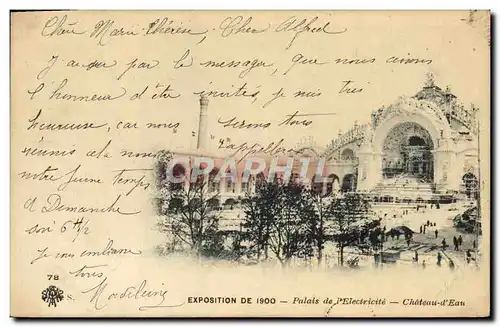 Chère Marie Thérèse, Cher Alfred
J'ai su par le messager, que nous avions
l'honneur d'être invités, je suis très
heureuse, car nous serons tous
réunis cela nous rappellera
notre jeune temps
à Dimanche
soir 6h1/2
je vous embrasse
tous
Madeleine
CPArama
78
S.
EXPOSITION DE 1900 — Palais de l'Electricité — Château-d'Eau